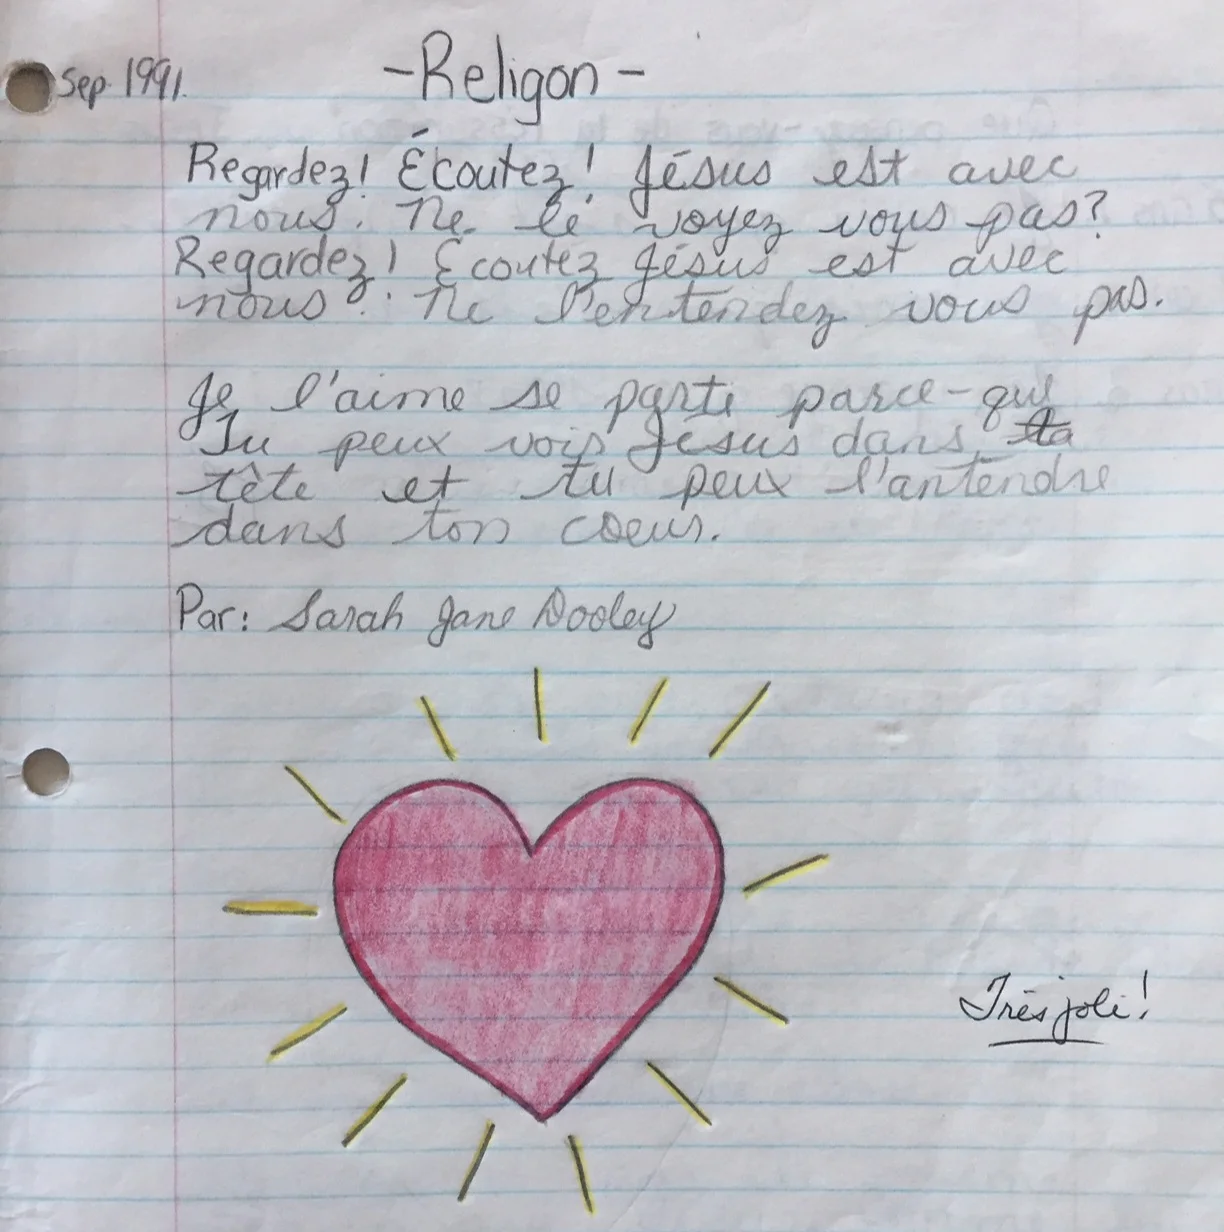 Sep. 1991.
-Religon-
Regardez! Écoutez! Jésus est avec
nous. Ne le voyez vous pas?
Regardez! Écoutez Jésus est avec
nous. Ne l'entendez vous pas.
Je l'aime se parti parce-que
Tu peux voir Jésus dans ta
tête et tu peux l'antendre
dans ton coeur.
Par: Sarah Jane Dooley
Très joli!